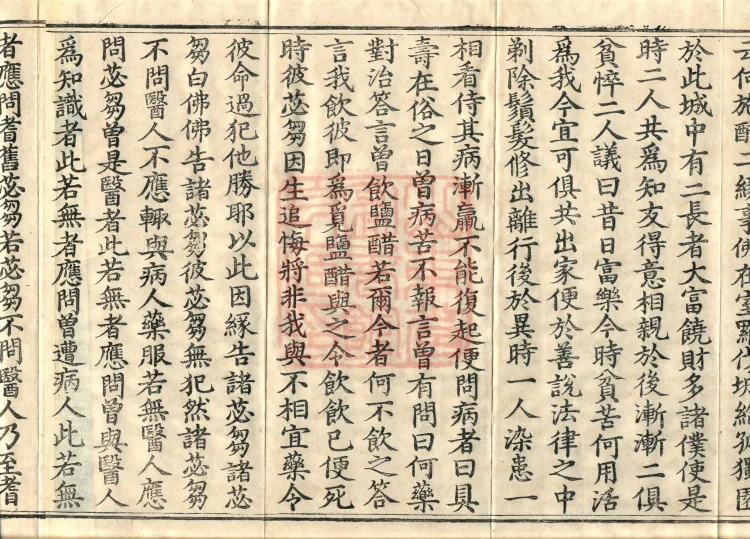 於此城中有二長者大富饒財多諸僕使是
時二人共為知友得意相親於後漸漸二俱
貧悴二人議曰昔日富樂今時貧苦何用活
為我今宜可俱共出家便於善說法律之中
剃除鬚髮修出離行後於異時一人染患一
相看侍其病漸羸不能復起便問病者曰具
壽在俗之日曾病苦不報言曾有問曰何藥
對治答言曾飲鹽醋若爾今者何不飲之答
言我飲彼即為覓鹽醋與之令飲飲已便死
時彼苾芻因生追悔將非我與不相宜藥令
彼命過犯他勝耶以此因緣告諸苾芻諸苾
芻白佛佛告諸苾芻彼苾芻無犯然諸苾芻
不問醫人不應輒與病人藥服若無醫人應
問苾芻曾是醫者此若無者應問曾與醫人
為知識者此若無者應問曾遭病人此若無
者應問耆舊苾芻若苾芻不問醫人乃至耆